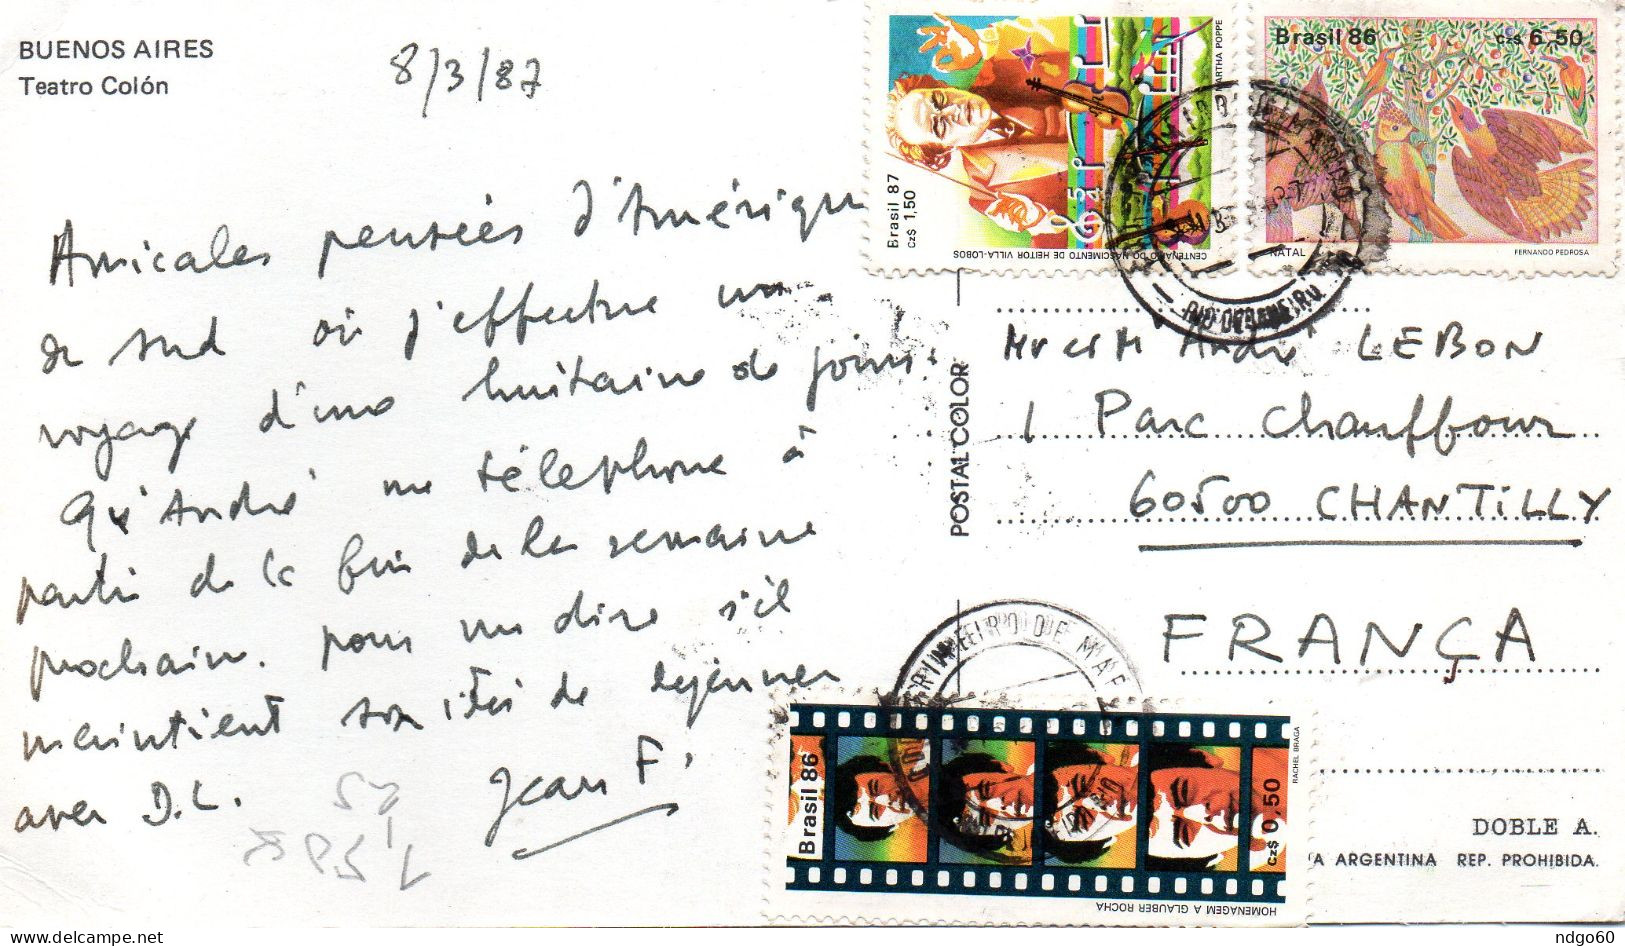 BUENOS AIRES
Teatro Colón
8/3/87
Amicales pensées d'Amérique
du sud où j'effectue un
voyage d'une huitaine de jours.
Qu'André me téléphone à
partir de la fin de la semaine
prochaine pour me dire s'il
maintient son idée de déjeuner
avec D.L.
Jean F.
POSTAL COLOR
Brasil 87
Cz$ 1,50
CENTENÁRIO DO NASCIMENTO DE HEITOR VILLA-LOBOS
MARTHA POPPE
Brasil 86 Cz$ 6,50
NATAL FERNANDO PEDROSA
RIO DE JANEIRO
Mr et M André LEBON
1 Parc Chauffour
60500 CHANTILLY
FRANÇA
Brasil 86
Cz$ 0,50
RACHEL BRAGA
HOMENAGEM A GLAUBER ROCHA
DOBLE A.
A ARGENTINA REP. PROHIBIDA.
ndgo60